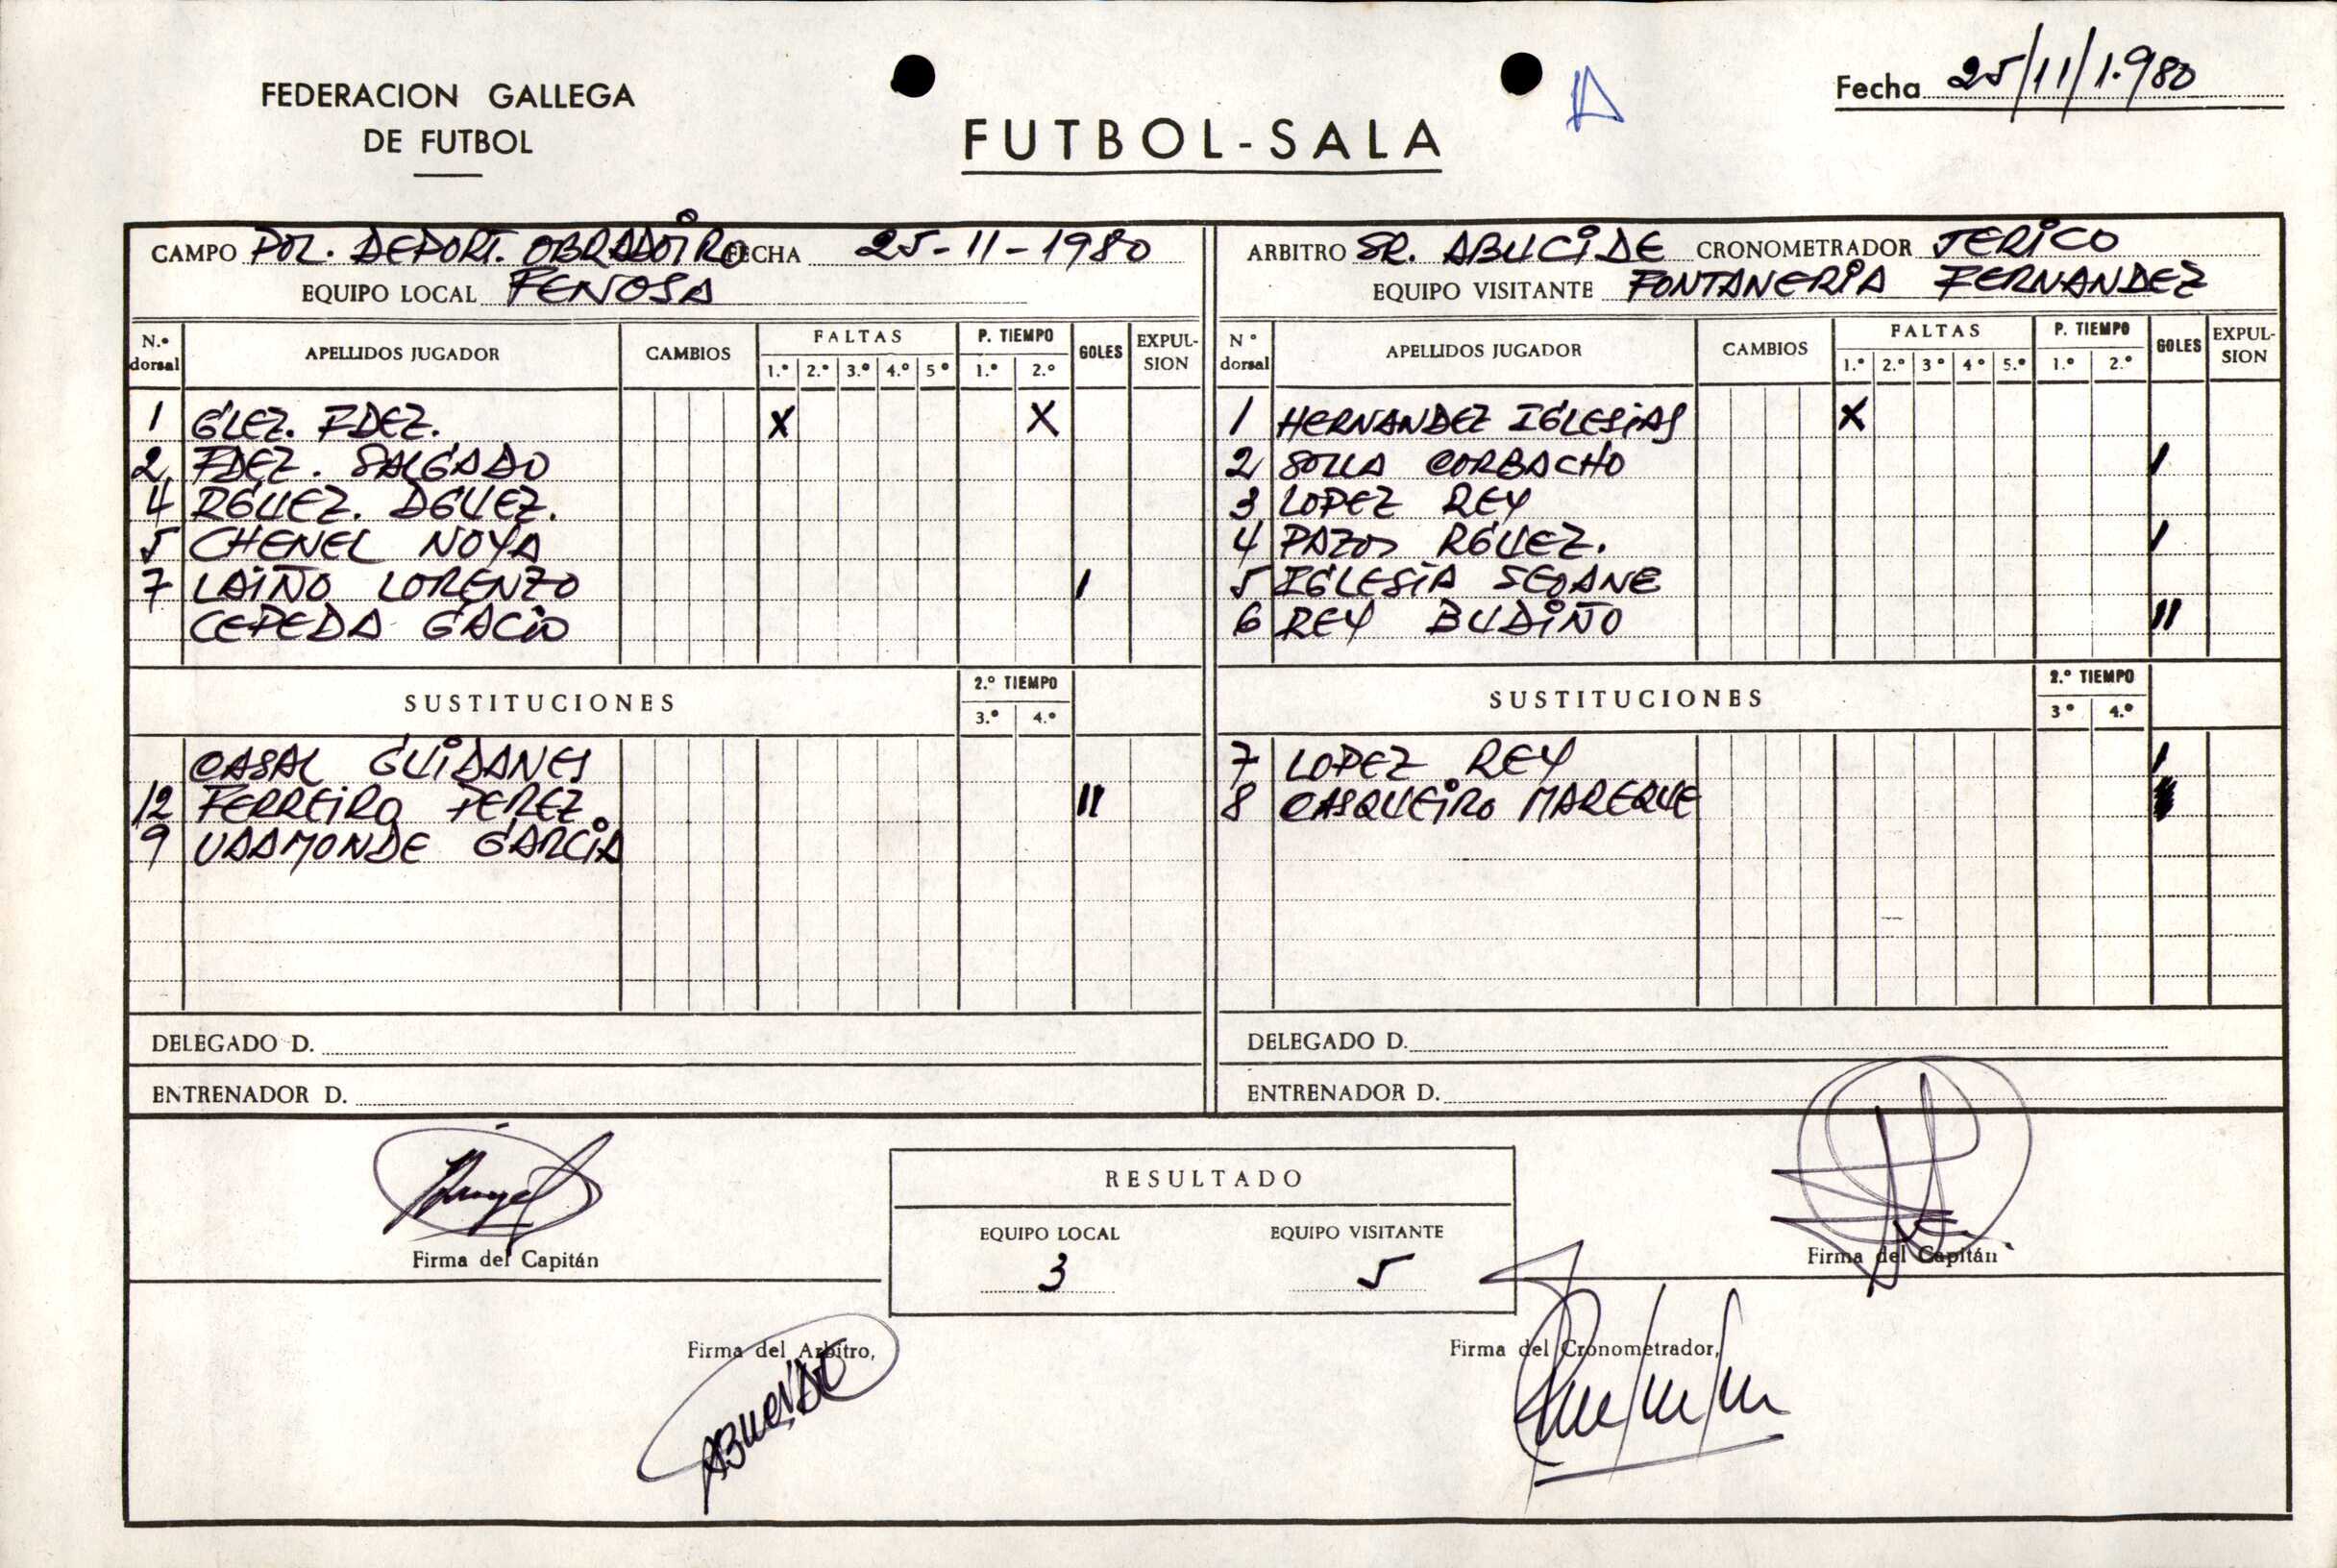 FEDERACION GALLEGA
DE FUTBOL
FUTBOL-SALA
Fecha 25/11/1.980
CAMPO POL. DEPORT. OBRADOIRO FECHA 25-11-1980
EQUIPO LOCAL FENOSA
N.º dorsal APELLIDOS JUGADOR CAMBIOS FALTAS 1.º 2.º 3.º 4.º 5º P. TIEMPO 1.º 2.º GOLES EXPULSION
1 GLEZ. FDEZ. X X
2 FDEZ. SALGADO
4 RGUEZ. DGUEZ.
5 CHENEL NOYA
7 LAIÑO LORENZO I
CEPEDA GACIO
SUSTITUCIONES 2.º TIEMPO 3.º 4.º
CASAL GUIDANES
12 FERREIRO PEREZ II
9 VAAMONDE GARCIA
DELEGADO D.
ENTRENADOR D.
ARBITRO SR. ABUCIDE CRONOMETRADOR JERICO
EQUIPO VISITANTE FONTANERIA FERNANDEZ
Nº dorsal APELLIDOS JUGADOR CAMBIOS FALTAS 1.º 2.º 3º 4º 5.º P. TIEMPO 1.º 2.º GOLES EXPULSION
1 HERNANDEZ IGLESIAS X
2 SOLLA CORBACHO I
3 LOPEZ REY
4 PAZOS RGUEZ. I
5 IGLESIA SEOANE
6 REY BUDIÑO II
SUSTITUCIONES 2.º TIEMPO 3º 4.º
7 LOPEZ REY I
8 CASQUEIRO MAREQUE
DELEGADO D.
ENTRENADOR D.
Firma del Capitán
RESULTADO
EQUIPO LOCAL EQUIPO VISITANTE
3 5
Firma del Capitán
Firma del Arbitro,
Firma del Cronometrador,